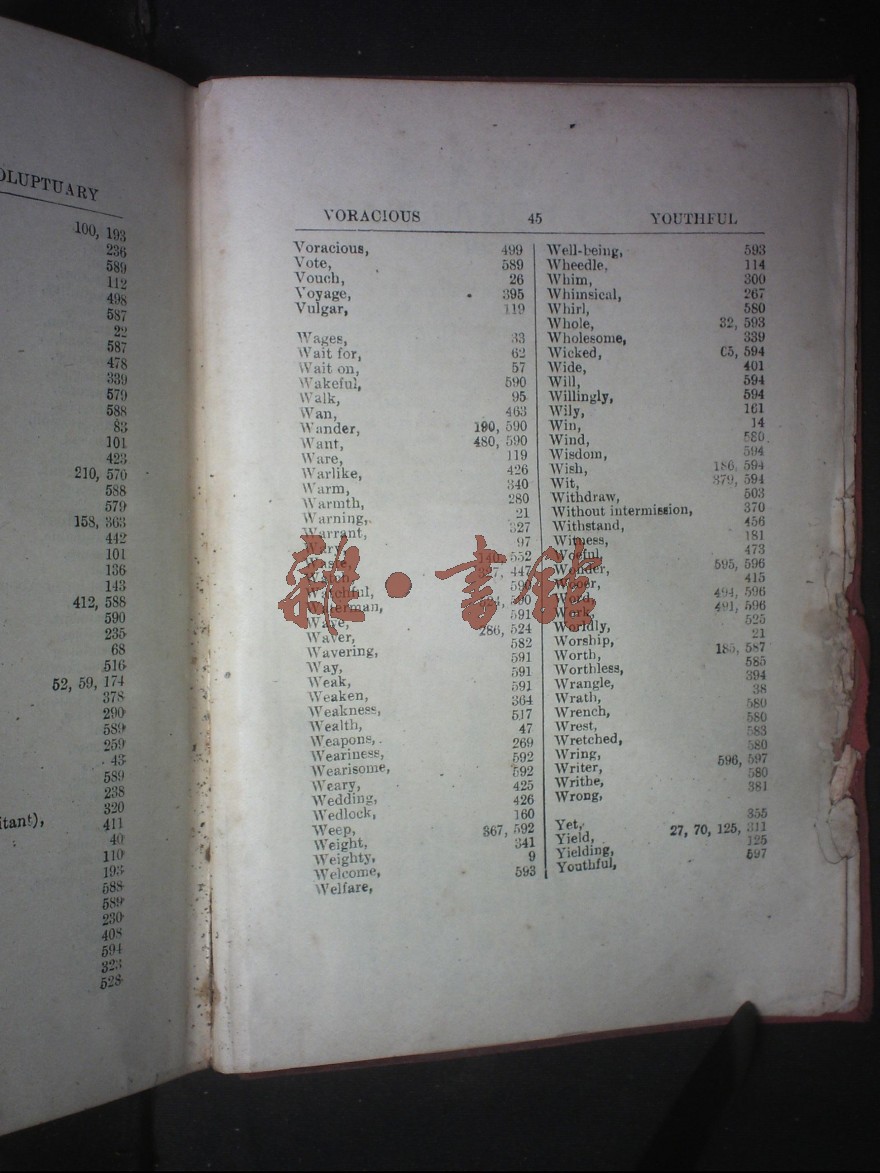 OLUPTUARY
100, 193
236
589
112
498
587
22
587
478
339
579
588
83
101
423
210, 570
588
579
158, 363
442
101
136
143
412, 588
590
235
68
516
52, 59, 174
378
290
589
259
43
589
238
320
itant), 411
40
110
193
588
589
230
408
594
323
528
VORACIOUS 45 YOUTHFUL
Voracious, 499
Vote, 589
Vouch, 26
Voyage, 395
Vulgar, 119
Wages, 33
Wait for, 62
Wait on, 57
Wakeful, 590
Walk, 95
Wan, 463
Wander, 190, 590
Want, 480, 590
Ware, 119
Warlike, 426
Warm, 340
Warmth, 280
Warning, 21
Warrant, 327
Wary, 97
Waste, 140, 552
Watch, 327, 447
Watchful, 590
Waterman, 590
Wave, 591
Waver, 286, 524
Wavering, 582
Way, 591
Weak, 591
Weaken, 591
Weakness, 364
Wealth, 517
Weapons, 47
Weariness, 269
Wearisome, 592
Weary, 592
Wedding, 425
Wedlock, 426
Weep, 160
Weight, 367, 592
Weighty, 341
Welcome, 9
Welfare, 593
Well-being, 593
Wheedle, 114
Whim, 300
Whimsical, 267
Whirl, 580
Whole, 32, 593
Wholesome, 339
Wicked, 65, 594
Wide, 401
Will, 594
Willingly, 594
Wily, 161
Win, 14
Wind, 580
Wisdom, 594
Wish, 186, 594
Wit, 379, 594
Withdraw, 503
Without intermission, 370
Withstand, 456
Witness, 181
Woeful, 473
Wonder, 595, 596
Wooer, 415
Word, 494, 596
Work, 491, 596
Worldly, 525
Worship, 21
Worth, 185, 587
Worthless, 585
Wrangle, 394
Wrath, 38
Wrench, 580
Wrest, 580
Wretched, 583
Wring, 580
Writer, 596, 597
Writhe, 580
Wrong, 381
Yet, 355
Yield, 27, 70, 125, 311
Yielding, 125
Youthful, 597
雜·書館